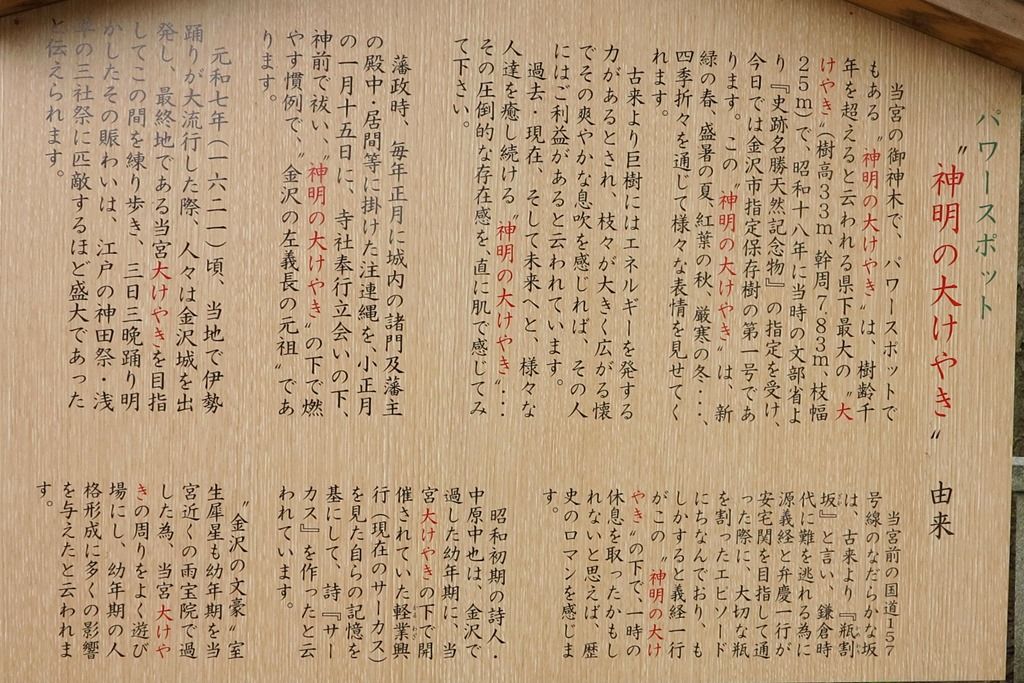 パワースポット
“神明の大けやき” 由来
当宮の御神木で、パワースポットで
もある“神明の大けやき”は、樹齢千
年を超えると云われる県下最大の“大
けやき”(樹高33m、幹周7.83m、枝幅
25m)で、昭和十八年に当時の文部省よ
り『史跡名勝天然記念物』の指定を受け、
今日では金沢市指定保存樹の第一号であ
ります。この“神明の大けやき”は、新
緑の春、盛暑の夏、紅葉の秋、厳寒の冬・・・、
四季折々を通じて様々な表情を見せてく
れます。
古来より巨樹にはエネルギーを発する
力があるとされ、枝々が大きく広がる懐
でその爽やかな息吹を感じれば、その人
にはご利益があると云われています。
過去・現在、そして未来へと、様々な
人達を癒し続ける“神明の大けやき”・・・
その圧倒的な存在感を、直に肌で感じてみ
て下さい。
藩政時、毎年正月に城内の諸門及藩主
の殿中・居間等に掛けた注連縄を、小正月
の一月十五日に、寺社奉行立会いの下、
神前で祓い、“神明の大けやき”の下で燃
やす慣例で、“金沢の左義長の元祖”であ
ります。
元和七年(一六二一)頃、当地で伊勢
踊りが大流行した際、人々は金沢城を出
発し、最終地である当宮大けやきを目指
してこの間を練り歩き、三日三晩踊り明
かしたその賑わいは、江戸の神田祭・浅
草の三社祭に匹敵するほど盛大であった
と伝えられます。
当宮前の国道157
号線のなだらかな坂
は、古来より『瓶割
坂』と言い、鎌倉時
代に難を逃れる為に
源義経と弁慶一行が
安宅関を目指して通
った際に、大切な瓶
を割ったエピソード
にちなんでおり、も
しかすると義経一行
がこの“神明の大け
やき”の下で、一時の
休息を取ったかもし
れないと思えば、歴
史のロマンを感じま
す。
昭和初期の詩人・
中原中也は、金沢で
過した幼年期に、当
宮大けやきの下で開
催されていた軽業興
行(現在のサーカス)
を見た自らの記憶を
基にして、詩『サー
カス』を作ったと云
われています。
“金沢の文豪”室
生犀星も幼年期を当
宮近くの雨宝院で過
した為、当宮大けや
きの周りをよく遊び
場にし、幼年期の人
格形成に多くの影響
を与えたと云われま
す。